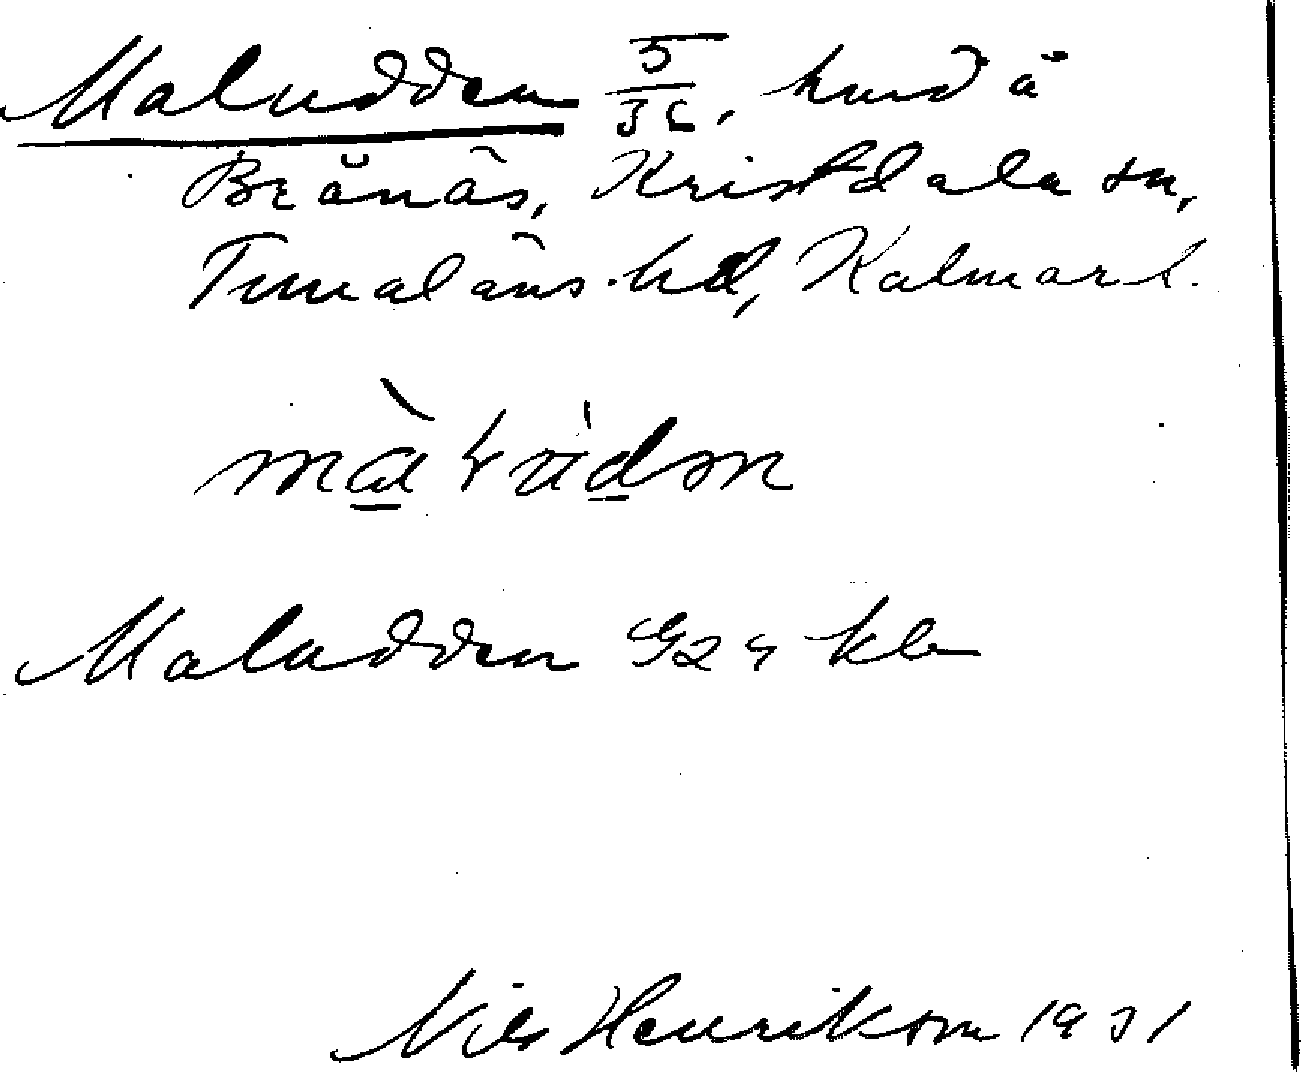 Maludden 5/36, hmd å
Brånäs, Kristdala sn,
Tunaläns hd, Kalmar l.
Maludden Gzy kln
Nils Henrikson 1931